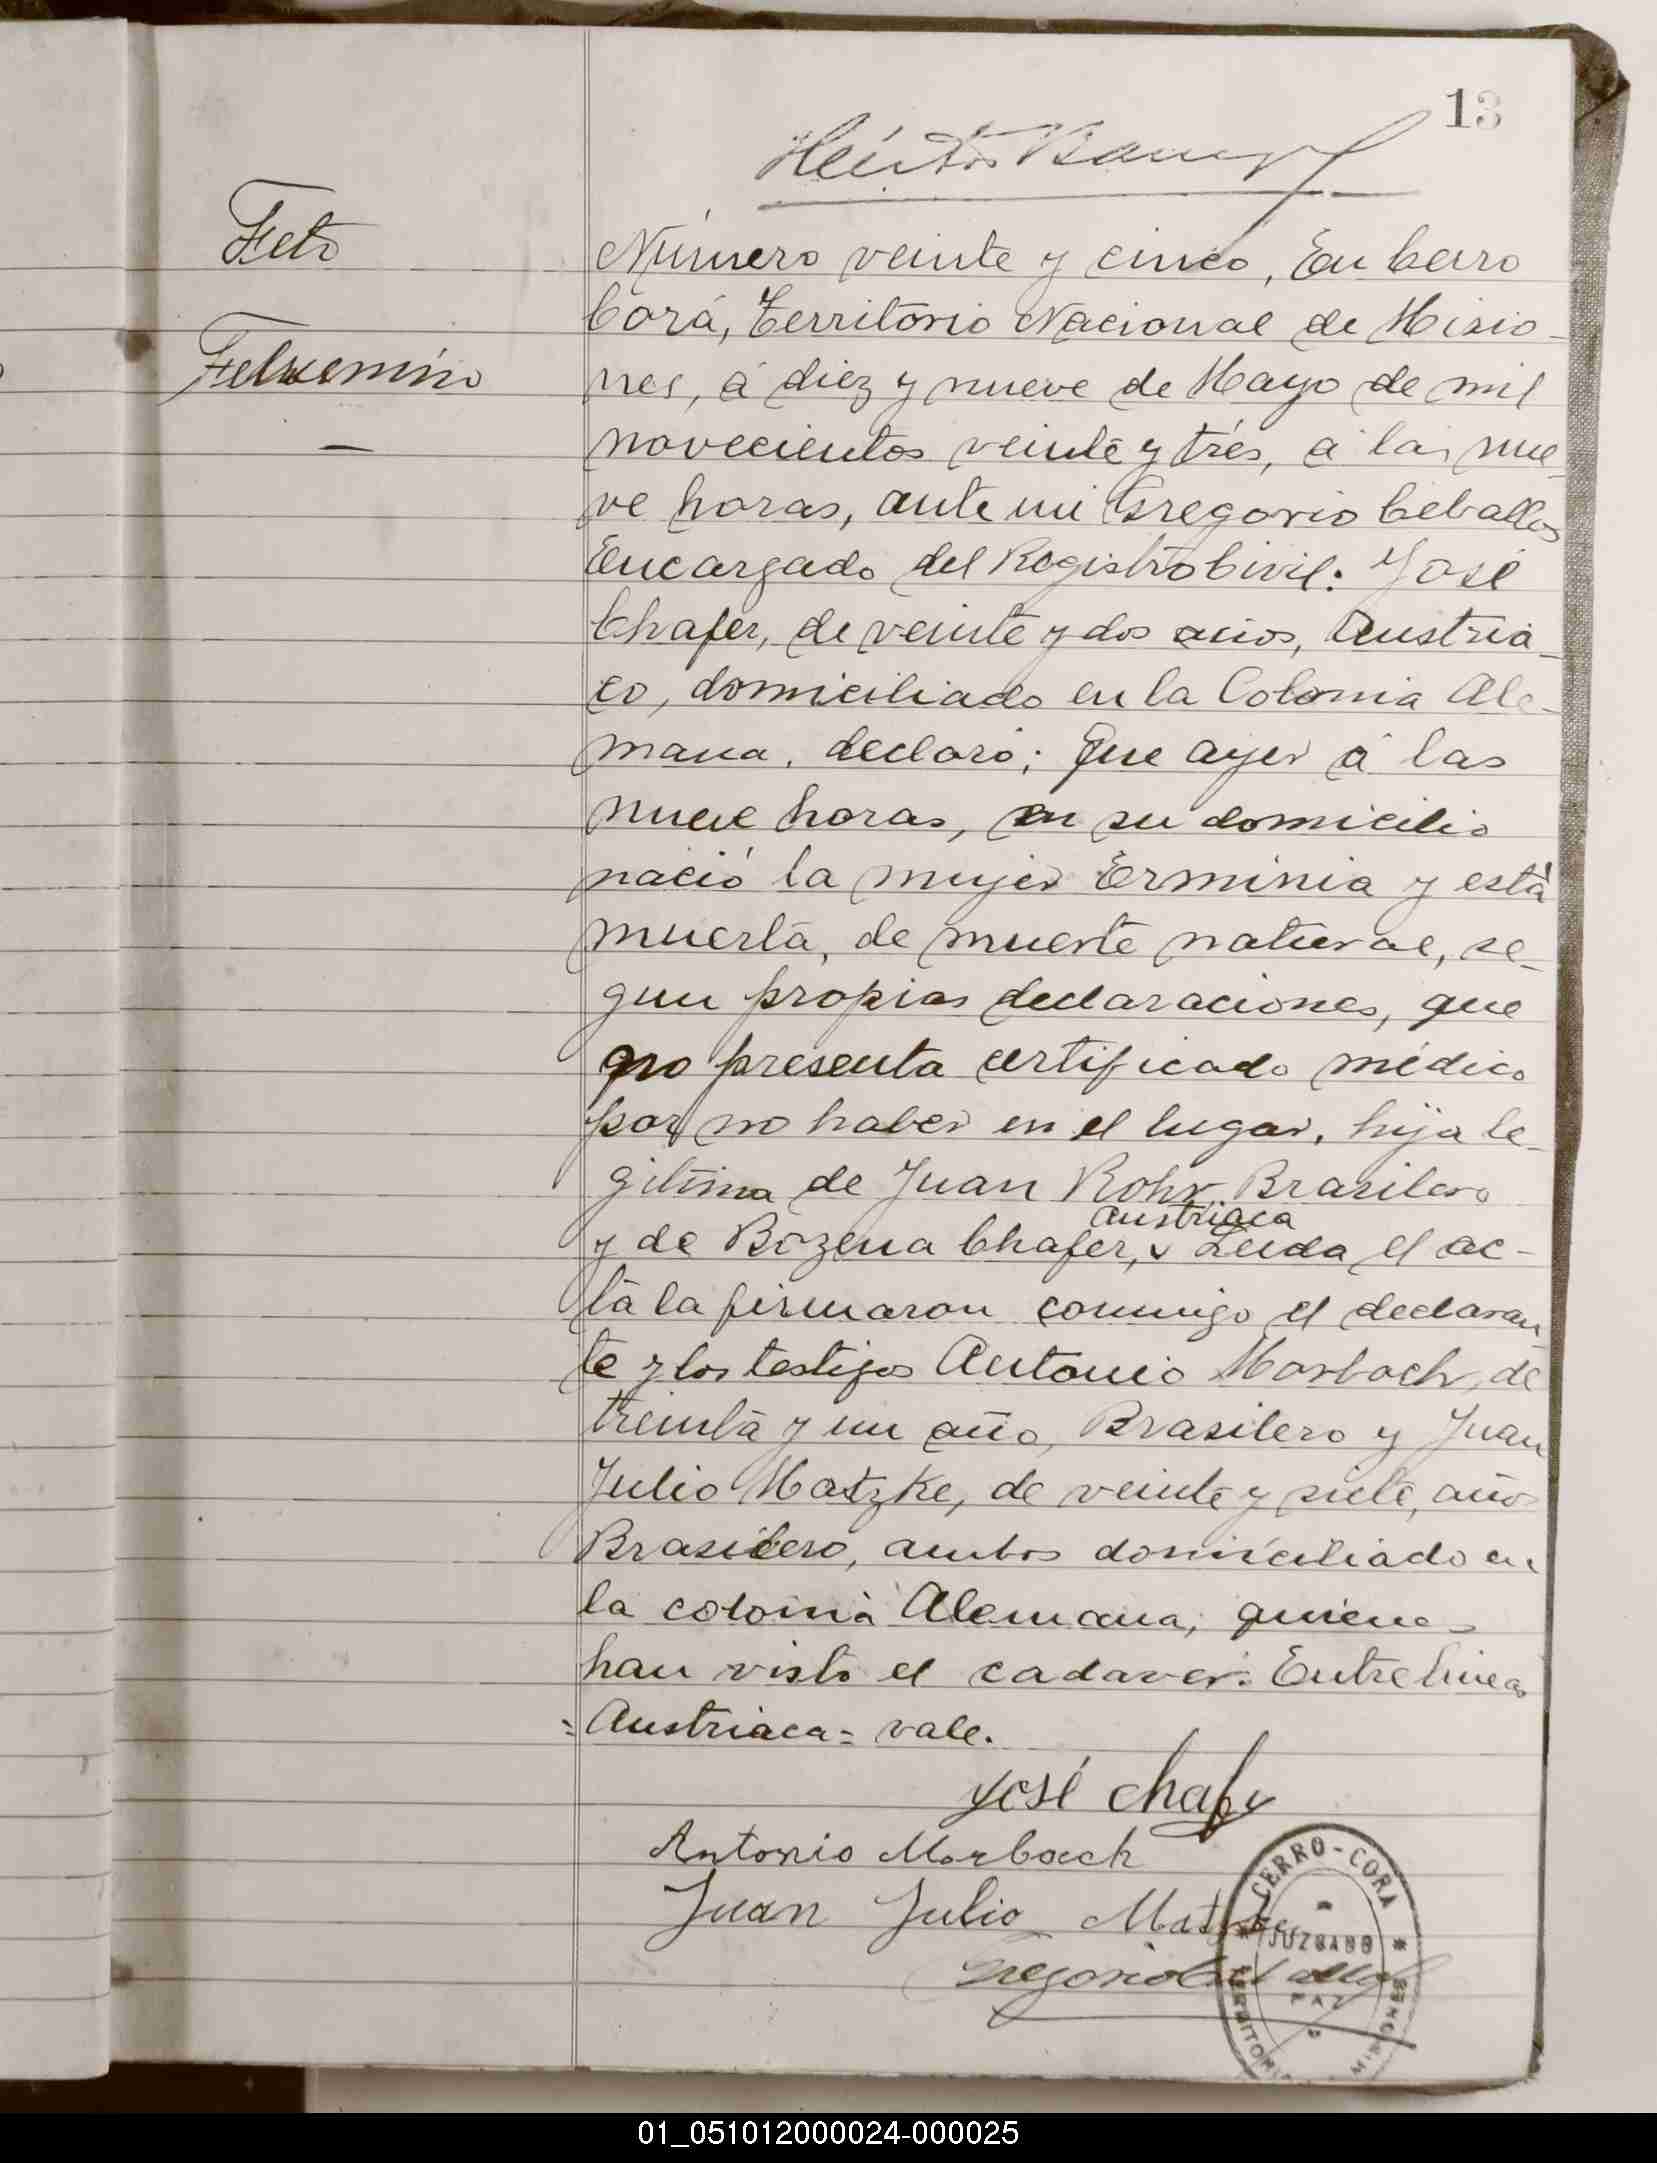 13
Feto
Femenino
Número veinte y cinco, En Cerro
Corá, Territorio Nacional de Misio-
nes, á diez y nueve de Mayo de mil
novecientos veinte y trés, á las nue-
ve horas, ante mi Gregorio Ceballos
Encargado del Registro Civil: José
Chafer, de veinte y dos años, Austria-
co, domiciliado en la Colonia Ale-
mana, declaró; Que ayer á las
nueve horas, en su domicilio
nació la mujer Erminia y está
muerta, de muerte natural, se-
gun propias declaraciones, que
no presenta certificado médico
por no haber en el lugar, hija le-
gitima de Juan Rohr Brasilero
Austriaca
y de Bozena Chafer, v Leida el ac-
ta la firmaron conmigo el declaran
te y los testigos Antonio Morbach, de
treinta y un año, Brasilero y Juan
Julio Matzke, de veinte y siete, años
Brasilero, ambos domiciliado en
la colonia Alemana, quienes
han visto el cadaver: Entre lineas
=Austriaca= vale.
José Chafer
Antonio Morbach
Juan Julio Matzke
Gregorio Ceballos
CERRO-CORA
JUZGADO
PAZ
TERRITORIO
MISIONES
01_051012000024-000025